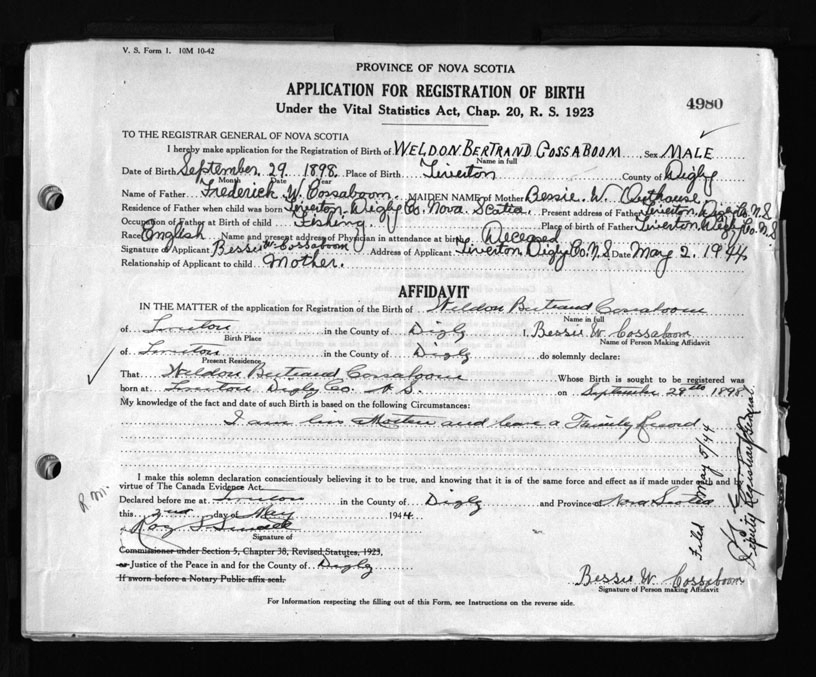 V. S. Form 1. 10M 10-42
PROVINCE OF NOVA SCOTIA
APPLICATION FOR REGISTRATION OF BIRTH
4980
Under the Vital Statistics Act, Chap. 20, R. S. 1923
TO THE REGISTRAR GENERAL OF NOVA SCOTIA
I hereby make application for the Registration of Birth of WELDON BERTRAND COSSABOOM Sex MALE
Name in full
Date of Birth September 29 1898 Place of Birth Tiverton County of Digby
Month Date Year
Name of Father Frederick W. Cossaboom MAIDEN NAME of Mother Bessie W. Outhouse
Residence of Father when child was born Tiverton Digby Co. Nova Scotia Present address of Father Tiverton Digby Co. N.S
Occupation of Father at Birth of child Fishing Place of birth of Father Tiverton Digby Co. N.S
Race English Name and present address of Physician in attendance at birth Deceased
Signature of Applicant Bessie W. Cossaboom Address of Applicant Tiverton Digby Co. N.S Date May 2. 1944
Relationship of Applicant to child Mother.
AFFIDAVIT
IN THE MATTER of the application for Registration of Birth of Weldon Bertrand Cossaboom
Name in full
of Tiverton in the County of Digby I, Bessie W. Cossaboom
Birth Place Name of Person Making Affidavit
of Tiverton in the County of Digby do solemnly declare:
Present Residence
That Weldon Bertrand Cossaboom Whose Birth is sought to be registered was
born at Tiverton, Digby Co. N. S. on September 29th 1898
My knowledge of the fact and date of such Birth is based on the following Circumstances:
I am his Mother and have a Family Record
I make this solemn declaration conscientiously believing it to be true, and knowing that it is of the same force and effect as if made under oath and
virtue of The Canada Evidence Act.
R. M.
Declared before me at Tiverton in the County of Digby and Province of Nova Scotia
this 2nd day of May 1944
Roy S
Signature of
Commissioner under Section 5, Chapter 38, Revised Statutes, 1923,
or Justice of the Peace in and for the County of Digby
If sworn before a Notary Public affix seal.
Bessie W. Cossaboom
Signature of Person making Affidavit
For Information respecting the filling out of this Form, see Instructions on the reverse side.
Filed May 8/44
Deputy Registrar General